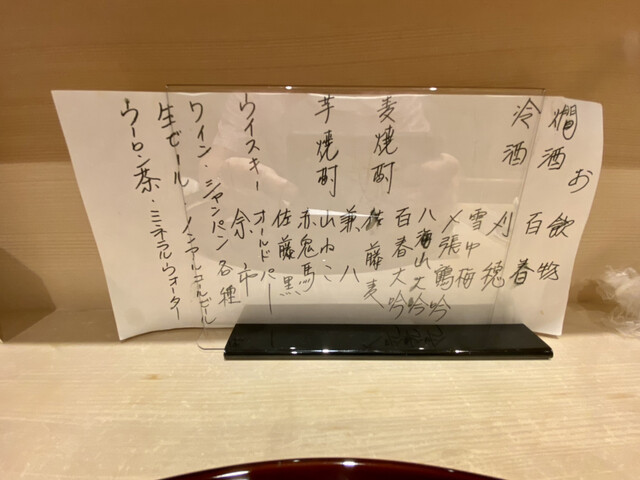 お飲物
燗酒 百春
冷酒 刈穂
雪中梅
〆張鶴 吟
八海山大吟
百春大吟
麦焼酎 佐藤麦
兼八
芋焼酎 山ねこ
赤兎馬
佐藤黒
ウイスキー オールドパー
余市
ワイン・シャンパン各種
生ビール ノンアルコールビール
ウーロン茶・ミネラルウォーター